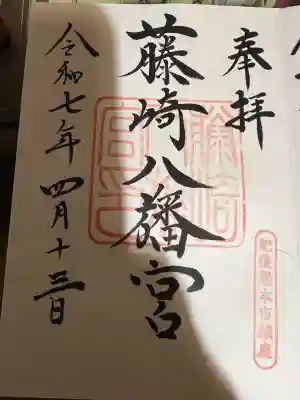 奉拝
藤崎八旛宮
令和七年四月十三日
肥後熊本市鎮座